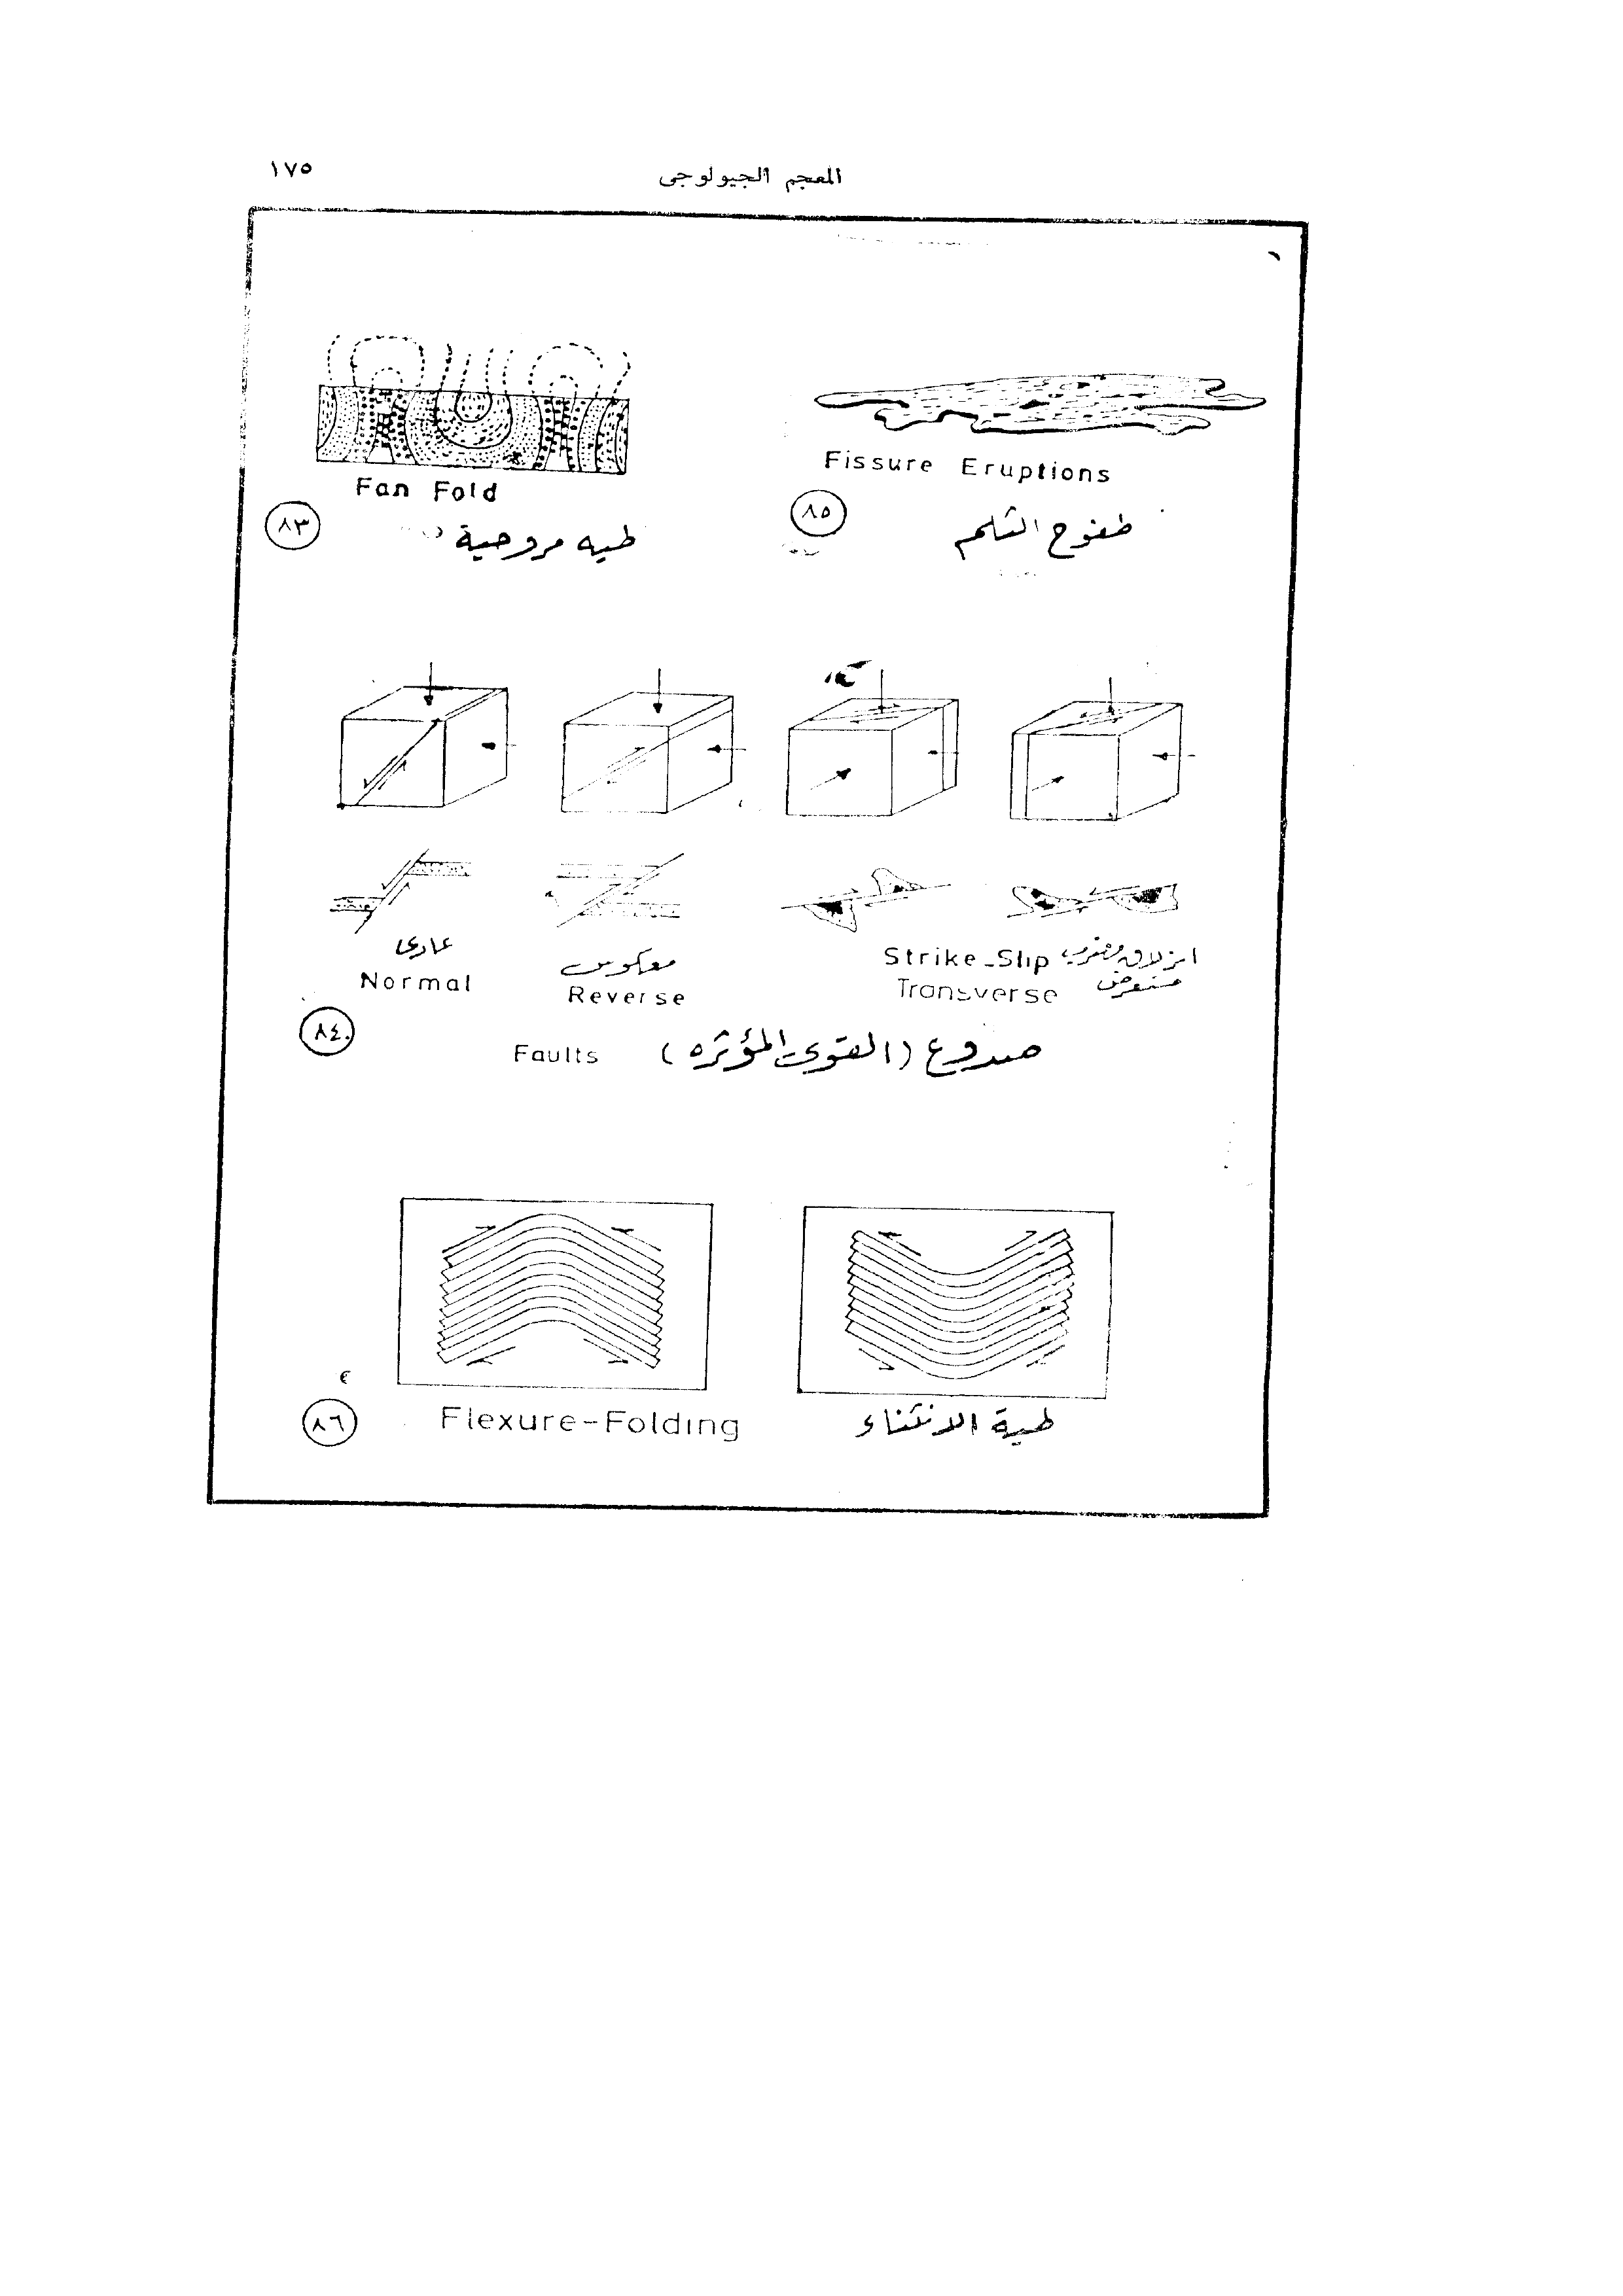 ١٧٥
المعجم الجيولوجى
Fan Fold
٨٣
طيه مروحية
Fissure Eruptions
٨٥
طفوح الثلم
عادى
Normal
معكوس
Reverse
Strike-Slip انزلاق مضرب
Transverse مستعرض
٨٤
Faults صدوع (القوى المؤثره)
٨٦
Flexure-Folding طية الانثناء